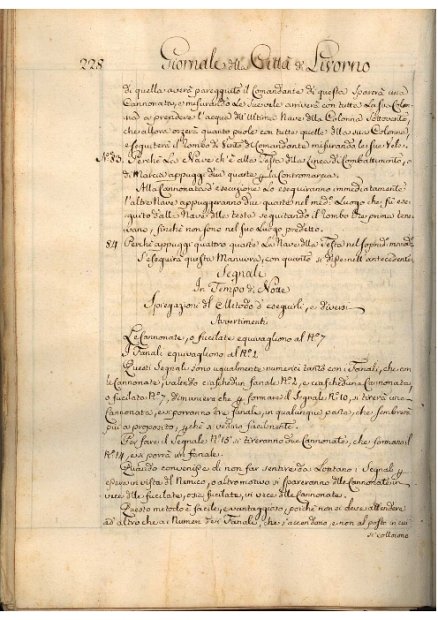 228 Giornale della Città di Livorno
di quella averà pareggiato il Comandante di questa sparerà una
Cannonata, e misurando Le sue vele arriverà con tutta La sua Colon-
na a prendere l'acque dell'Ultima Nave della Colonna Sottovento,
che allora orzerà quanto puole con tutte quelle della sua Colonna,
e seguiterà il Rombo di Vento del Comandante misurando le sue Vele.
N.° 83. Perchè La Nave ch'è alla Testa della Linea di Combattimento, o
di Marcia appuggi due quarte la Contromarcia.
Alla Cannonata d'esecuzione Lo eseguiranno immediatamente
l'altre Nave appuggeranno due quarte nel med.° Luogo che fù ese-
guito dalla Nave della testa seguitando il Rombo che prima tene-
vano, finchè non sono nel suo Luogo predetto.
84 Perchè appuggi quattro quarte La Nave della Testa nel
S'eseguirà questa Manuvra, con quanto si disse nell'antecedente.
Segnali
In Tempo di Notte
Spiegazioni del Metodo d'eseguirli, e diversi
Avvertimenti
Le Cannonate, o fucilate equivagliono al N.° 7
I Fanali equivagliono al N.° 2
Questi Segnali sono ugualmente numerici tanto con i Fanali, che con
le Cannonate, valendo ciaschedun fanale N.° 2, e ciascheduna Cannonata,
o fucilata N.° 7, dimaniera che p formare il Segnale N.° 10, si tirerà una
Cannonata, e si porranno tre fanali, in qualunque posto, che sembrerà
più a proposito, p chè si vedino facilmente.
Per fare il Segnale N.° 15 si tireranno due Cannonate, che formano il
N.° 14, e si porrà un fanale.
Quando convenisse di non far sentire da Lontano i Segnali p
essere in vista del Nemico, o altro motivo si spareranno delle Cannonate in
vece delle fucilate, o sia fucilate, in vece delle Cannonate.
Questo metodo è facile, e vantaggioso, poichè non si deve attendere
ad altro che ai Numeri dei Fanali, che s'accendono, e non al posto in cui
si collocano